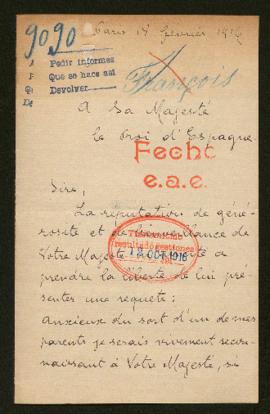 9090
Paris 18 février 1916
Pedir informes
Que se hace así
Devolver
François
A Sa Majesté
le Roi d'Espagne
Fecho
e.a.e.
Sire,
La réputation de géné-
rosité et de bienveillance de
Votre Majesté
OCT 1916
prendre la liberté de lui pré-
senter une requête:
Anxieux du sort d'un de mes
parents je serais vivement recon-
naissant à Votre Majesté, si